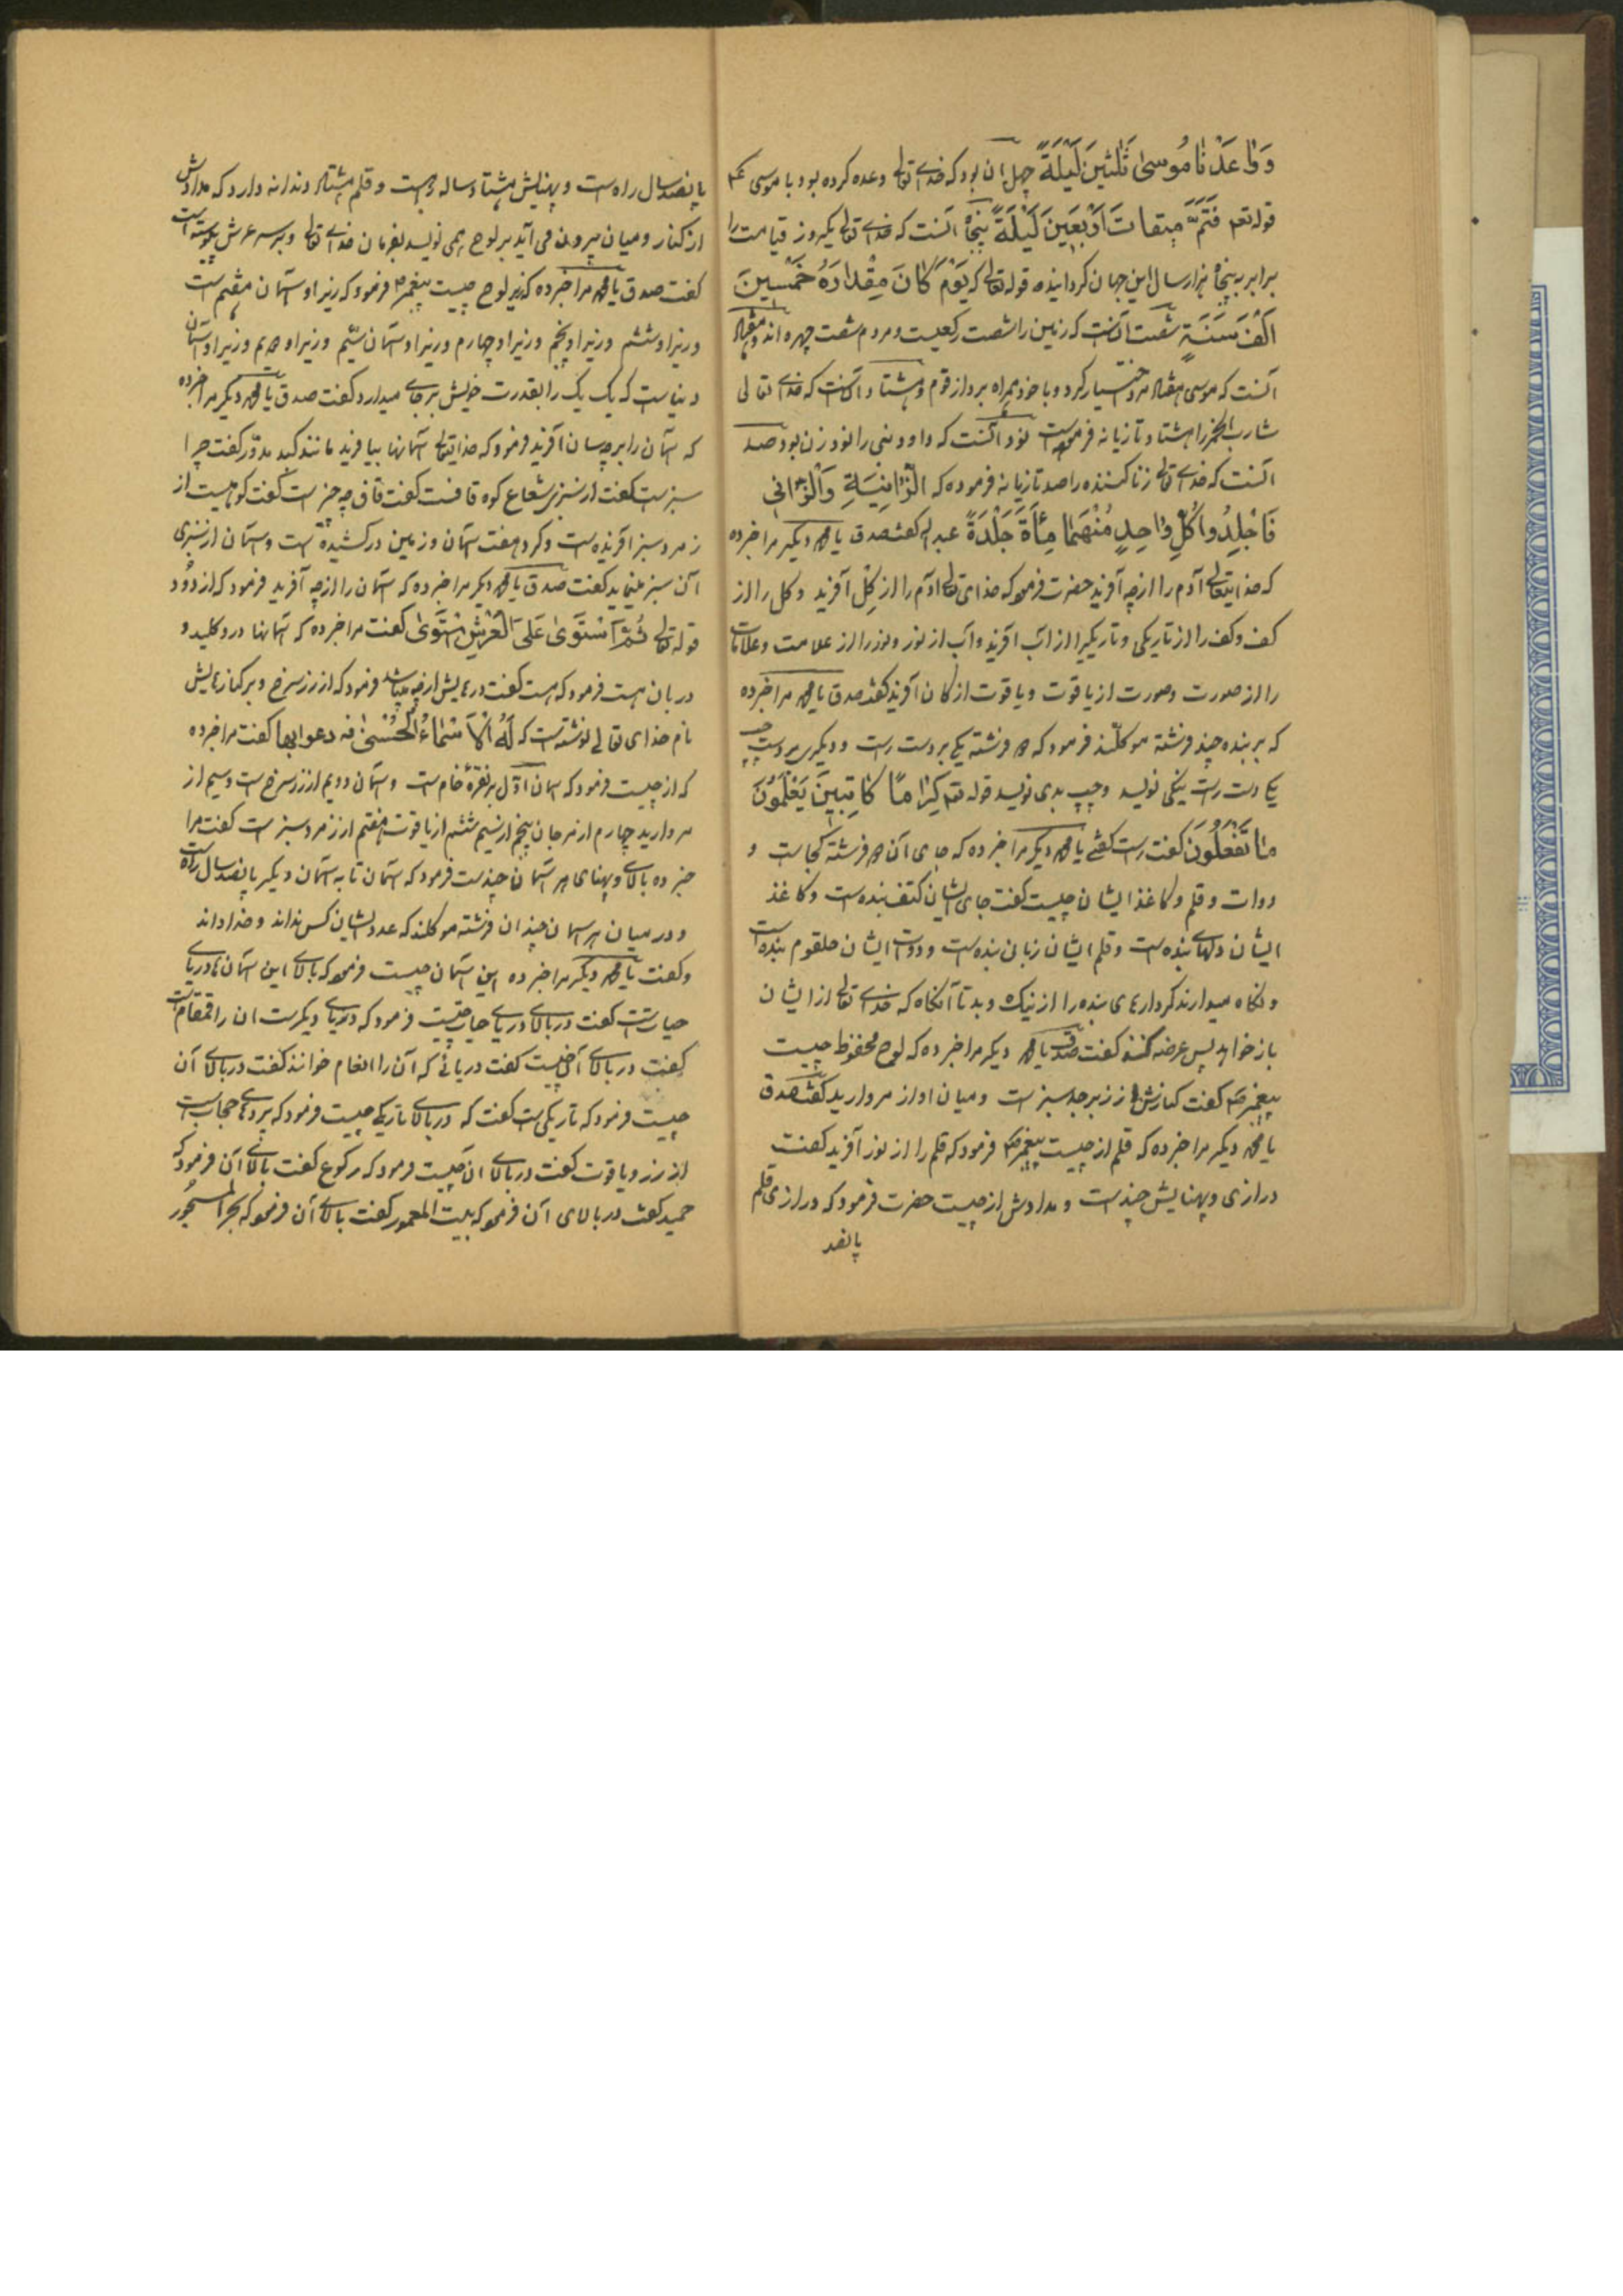 وَوٰاعَدْنٰا مُوسىٰ ثَلٰثِينَ لَيْلَةً چهل آن بود که خدای تعالی وعده کرده بود با موسی ع
قوله تعم فَتَمَّ مِيقاتَ اَرْبَعِينَ لَيْلَةً پنجاه آنست که خدای تعالی یکروز قیامت را
برابر به پنجاه هزار سال این جهان گردانیده قوله تعالی که يَوْمَ كٰانَ مِقْدٰارَهُ خَمْسِينَ
اَلْفَ سَنَةٍ شصت آنست که زمین را شصت رکعیست و مردم شصت چهره اند و هفتاد
آنست که موسی هفتاد مرد اختیار کرد و با خود همراه برد از قوم و هشتاد آنست که خدای تعالی
شارب الخمر را هشتاد تازیانه فرموده است نود آنست که داود نبی را نود زن بود صد
آنست که خدای تعالی زنا کننده را صد تازیانه فرموده که اَلزّٰانِيَةِ وَاَلزّٰانِي
فَاجْلِدُوا كُلَّ وٰاحِدٍ مِنْهُمٰا مِأَةَ جَلْدَةً عبداله گفت صدق یا محمد دیگر مرا خبر ده
که خدایتعالی آدم را از چه آفرید حضرت فرمود که خدای تعالی آدم را از گِل آفرید و گل را از
کف و کف را از تاریکی و تاریکی را از آب آفرید و آب از نور و نور را از علامت و علامات
را از صورت و صورت از یاقوت و یاقوت از کان آفرید گفت صدق یا محمد مرا خبر ده
که بر بنده چند فرشته موکلند فرمود که دو فرشته یکی بر دست راست و دیگری بر دست چپ
یکی دست راست نیکی نویسد و چپ بدی نویسد قوله تعم كِرٰامًا كٰاتِبِينَ يَعْلَمُونَ
مٰا تَفْعَلُونَ گفت راست گفتی یا محمد دیگر مرا خبر ده که جای آن دو فرشته کجاست و
دوات و قلم و کاغذ ایشان چیست گفت جای ایشان کتف بنده است و کاغذ
ایشان دلهای بنده است و قلم ایشان زبان بنده است و دوات ایشان حلقوم بنده است
و نگاه میدارند کردارهای بنده را از نیک و بد تا آنگاه که خدای تعالی از ایشان
باز خواهد پس عرضه کنند گفت صدق یا محمد دیگر مرا خبر ده که لوح محفوظ چیست
پیغمبر ص گفت کنارش از زبرجد سبز است و میان او از مروارید گفت صدق
یا محمد دیگر مرا خبر ده که قلم از چیست پیغمبر ص فرمود که قلم را از نور آفرید گفت
درازی و پهنایش چند است و مدادش از چیست حضرت فرمود که درازی قلم
پانصد
پانصد سال راه است و پهنایش هشتاد ساله راهست و قلم هشتاد دندانه دارد که مدادش
از کنار و میان بیرون می آید بر لوح همی نویسد بفرمان خدای تعالی و بر سر عرش پیوسته است
گفت صدق یا محمد مرا خبر ده که زیر لوح چیست پیغمبر ص فرمود که زیر او آسمان هفتم است
و زیر او ششم و زیر او پنجم و زیر او چهارم و زیر او آسمان سیّم و زیر او دویم و زیر او آسمان
دنیاست که یک یک را بقدرت خویش بر جای میدارد گفت صدق یا محمد دیگر مرا خبر ده
که آسمان را بر چه سان آفرید فرمود که خدایتعالی آسمانها بیافرید مانند گنبد مدوّر گفت چرا
سبز است گفت از سبزی شعاع کوه قافست گفت قاف چه چیز است گفت کوهیست از
زمرد سبز آفریده است و گرد هفت آسمان و زمین در کشیده است و آسمان از سبزی
آن سبز مینماید گفت صدق یا محمد دیگر مرا خبر ده که آسمان را از چه آفرید فرمود که از دُود
قوله تعالی ثُمَّ اَسْتَوىٰ عَلَى اَلْعَرْشِ اسْتَوىٰ گفت مرا خبر ده که آسمانها در و کلید و
دربان هست فرمود که هست گفت درهایش از چه میباشد فرمود که از زر سرخ و بر کنارهایش
نام خدای تعالی نوشته است که لَهُ اَلْاَسْمٰاءُ الْحُسْنىٰ فه دعوا بها گفت مرا خبر ده
که از چیست فرمود که آسمان اوّل بر نقرهٔ خام است و آسمان دویم از زر سرخ است و سیم از
مروارید چهارم از مرجان پنجم از سیم ششم از یاقوت هفتم از زمرد سبز است گفت مرا
خبر ده بالای و پهنای هر آسمان چند است فرمود که آسمان تا به آسمان دیگر پانصد سال راه است
و در میان هر آسمان چندان فرشته موکلند که عدد ایشان کس نداند و خدا داند
و گفت یا محمد دیگر مرا خبر ده این آسمان چیست فرمود که بالای این آسمان ها دریای
حیاتست گفت در بالای دریای حیات چیست فرمود که دریای دیگر است آن را قمقام است
گفت در بالای آن چیست گفت دریائی که آن را انعام خوانند گفت در بالای آن
چیست فرمود که تاریکی است گفت که در بالای تاریکی چیست فرمود که پرده های حجاب است
از زر و یاقوت گفت در بالای آن چیست فرمود که رکوع گفت بالای آن فرمود که
حمید گفت در بالای آن فرمود که بیت المعمور گفت بالای آن فرمود که بحر المسجُور